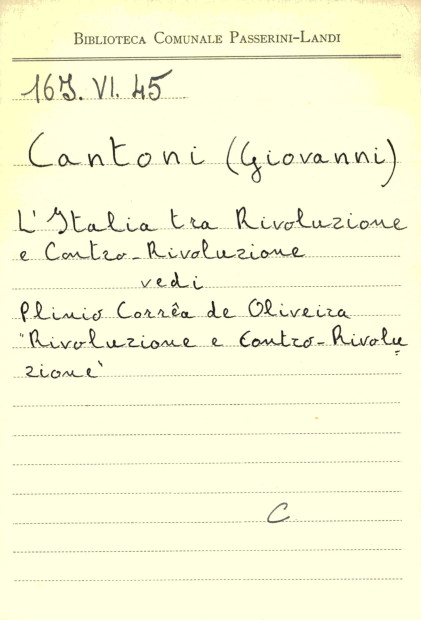 BIBLIOTECA COMUNALE PASSERINI-LANDI
16J. VI. 45
Cantoni (Giovanni)
L'Italia tra Rivoluzione
e Contro-Rivoluzione
vedi
Plinio Corrêa de Oliveira
"Rivoluzione e Contro-Rivolu
zione"
C